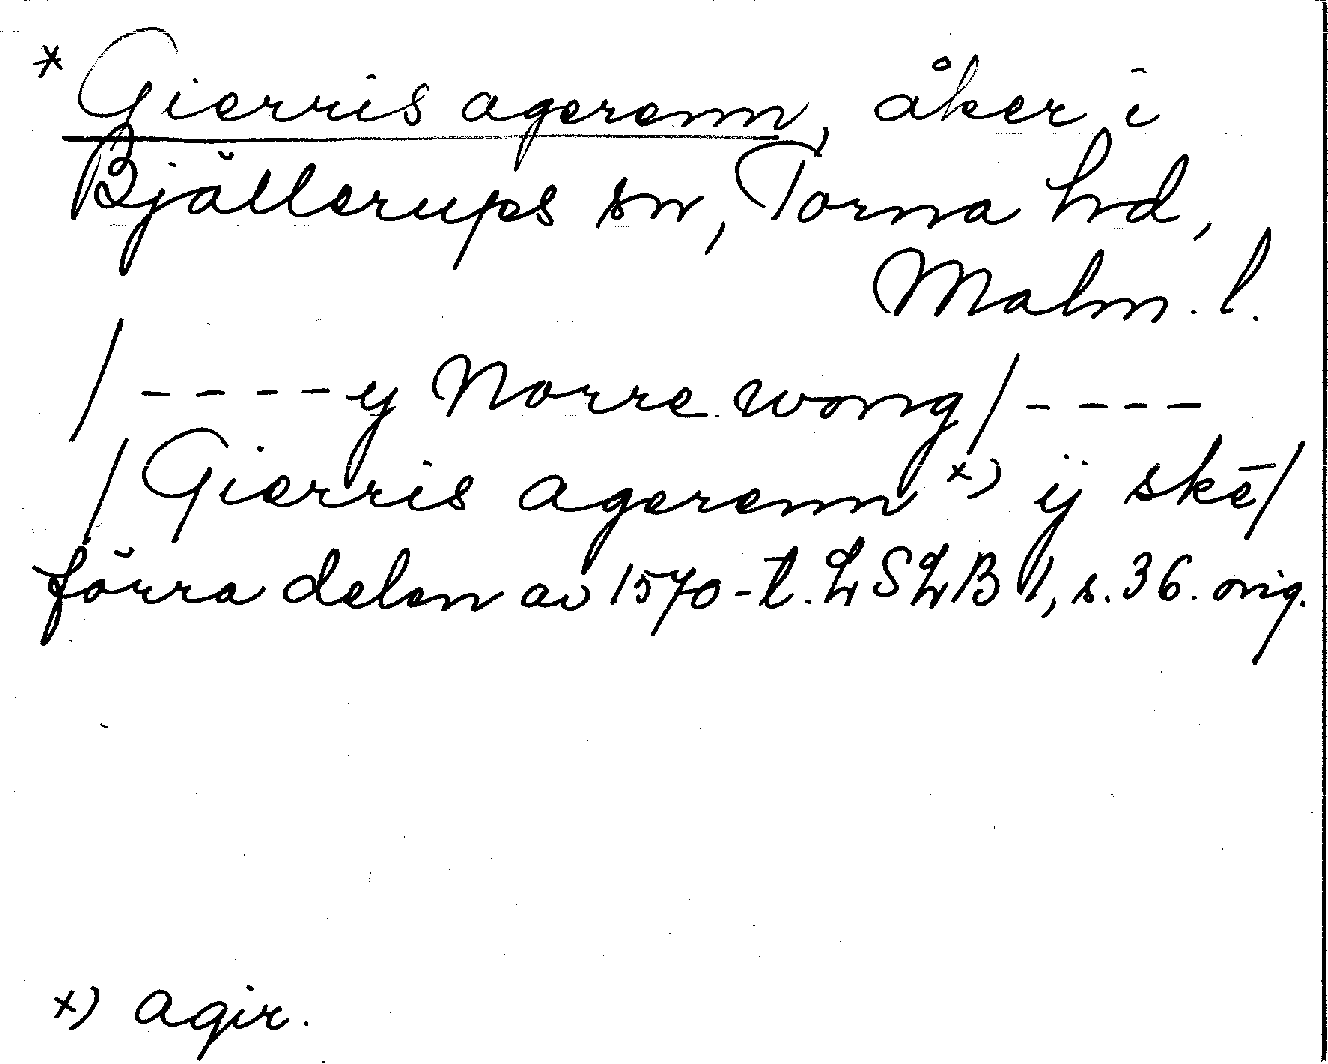 * Gierris agerenn, åker i
Bjällerups sn, Torna hd,
Malm. l.
/ - - - - y Norre wong / - - - -
/ Gierris agerenn x) ij skē /
förra delen av 1570-t. LSLB 1, s. 36. orig.
x) agir.